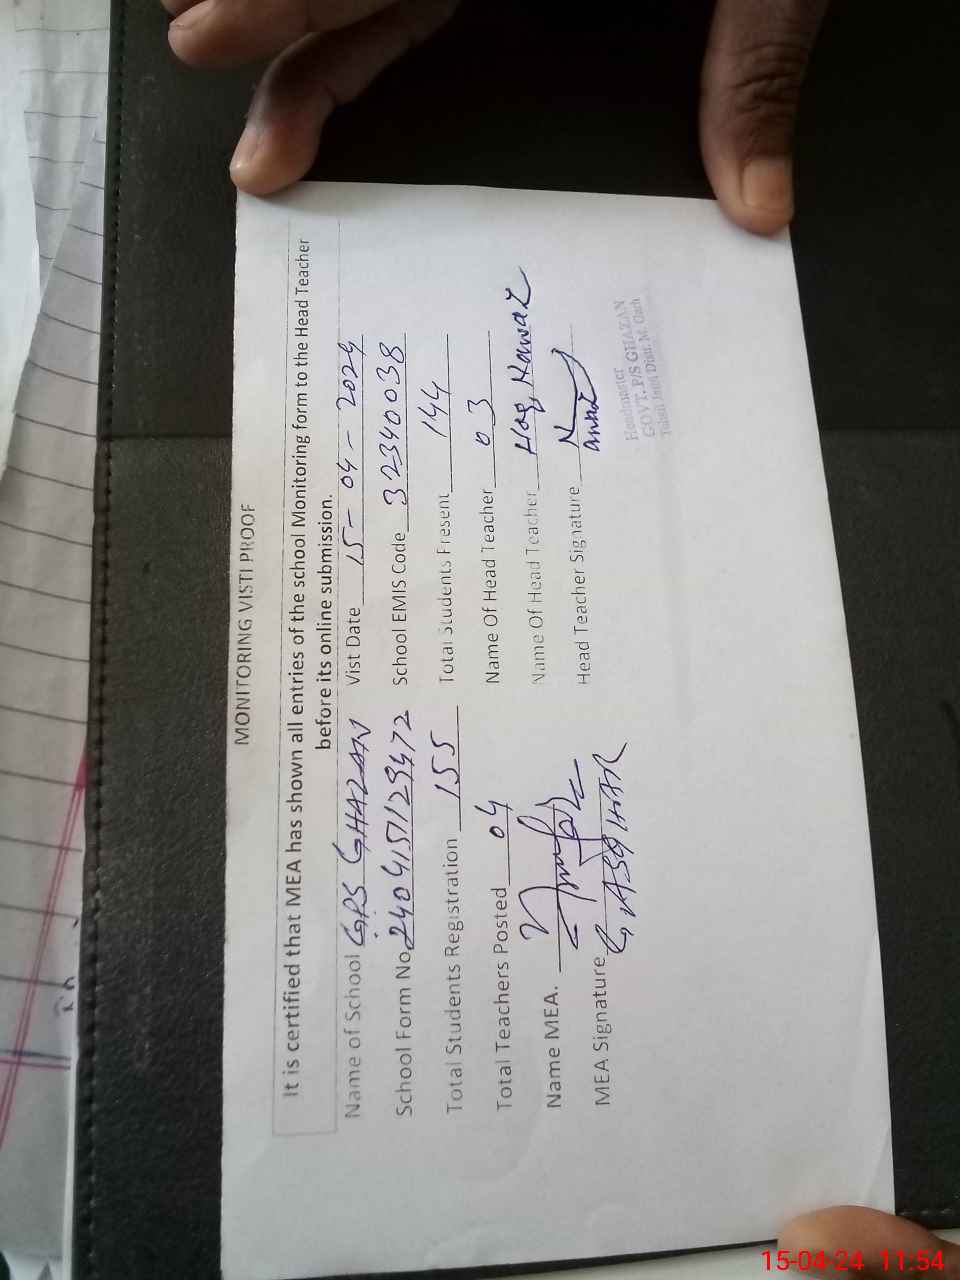 MONITORING VISTI PROOF
It is certified that MEA has shown all entries of the school Monitoring form to the Head Teacher
before its online submission.
Name of School GPS GHAZAN Vist Date 15-04-2024
School Form No. 2404151129472 School EMIS Code 32340038
Total Students Registration 155 Total Students Present 144
Total Teachers Posted 04 Name Of Head Teacher 03
Name MEA. Name Of Head Teacher Haq Nawaz
MEA Signature G. ASGHAR Head Teacher Signature
Headmaster
GOVT. P/S GHAZAN
15-04-24 11:54